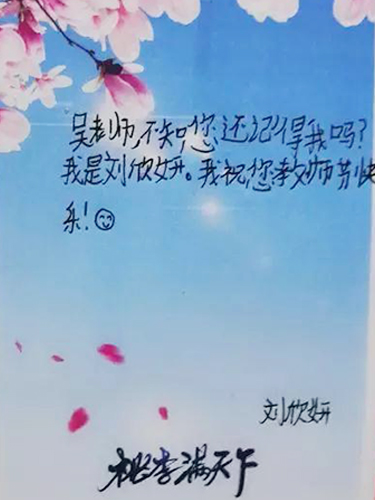 吴老师,不知,您还记得我吗?
我是刘欣妍。我祝您教师节快
乐!😊
刘欣妍
桃李满天下